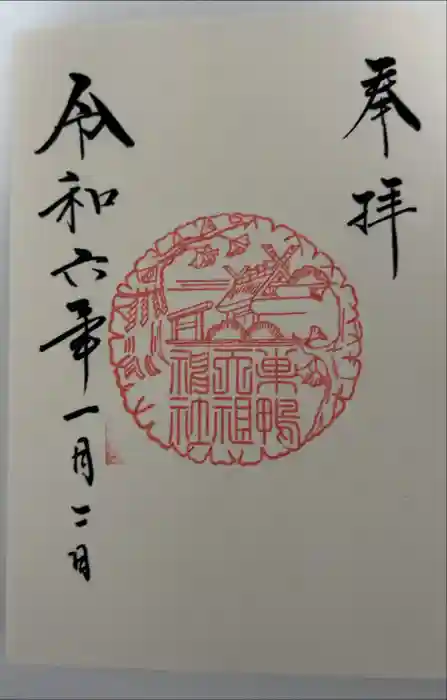 奉拝
東鴨
天祖
神社
令和六年一月二日